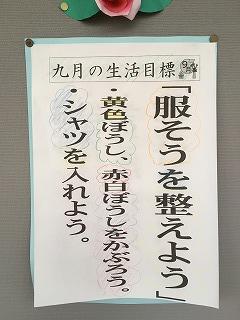 九月の生活目標
「服そうを整えよう」
・黄色ぼうし、赤白ぼうしをかぶろう。
・シャツを入れよう。